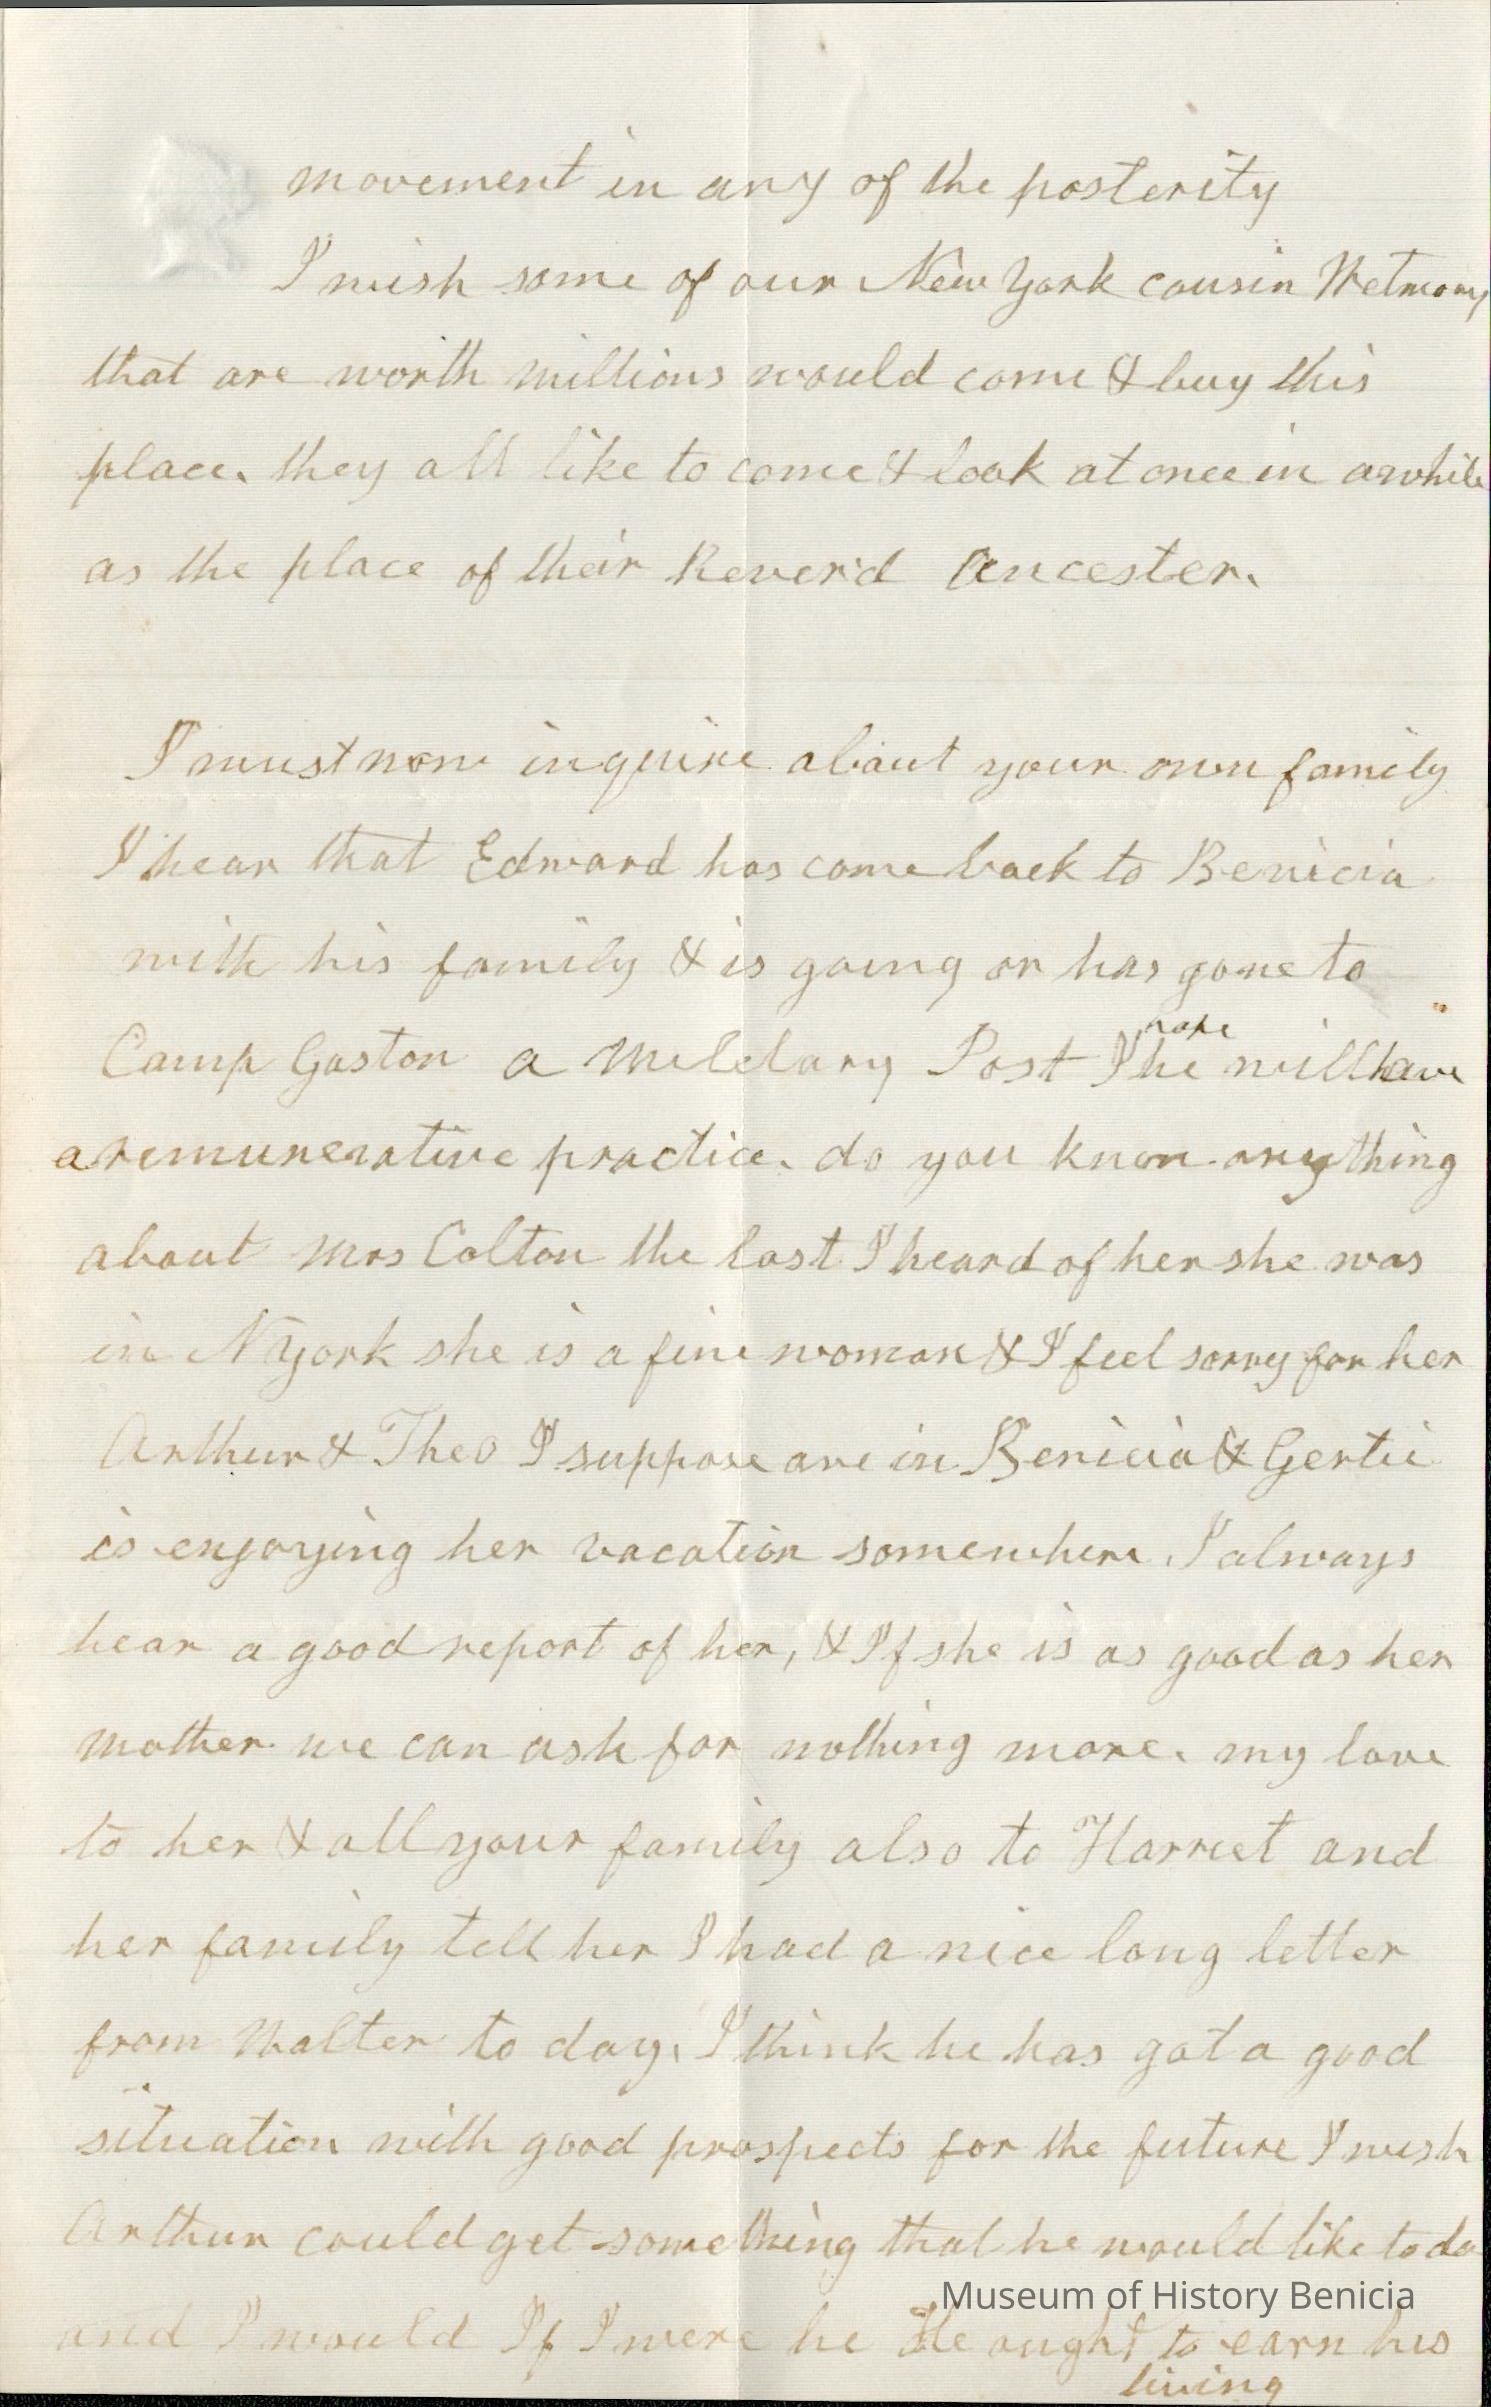 movement in any of the posterity
I wish some of our New York cousin Wetmores
that are worth millions would come & buy this
place. they all like to come & look at once in awhile
as the place of their Rever'd Ancester.
I must now inquire about your own family
I hear that Edward has come back to Benicia
with his family & is going or has gone to
hope
Camp Gaston a Miletary Post I he will have
a remunerative practice. do you know anything
about Mrs Colton the last I heard of her she was
in N York she is a fine woman & I feel sorry for her
Arthur & Theo I suppose are in Benicia & Gertie
is enjoying her vacation somewhere. I always
hear a good report of her, & If she is as good as her
mother we can ask for nothing more. my love
to her & all your family also to Harriet and
her family tell her I had a nice long letter
from Walter to day. I think he has got a good
situation with good prospects for the future I wish
Arthur could get something that he would like to do
Museum of History Benicia
and I would If I were he He ought to earn his
living